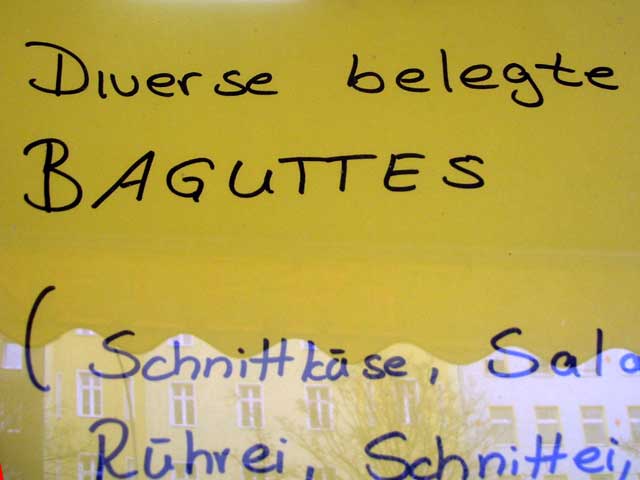 Diverse belegte
BAGUTTES
(Schnittkäse, Sala
Rührei, Schnittei,